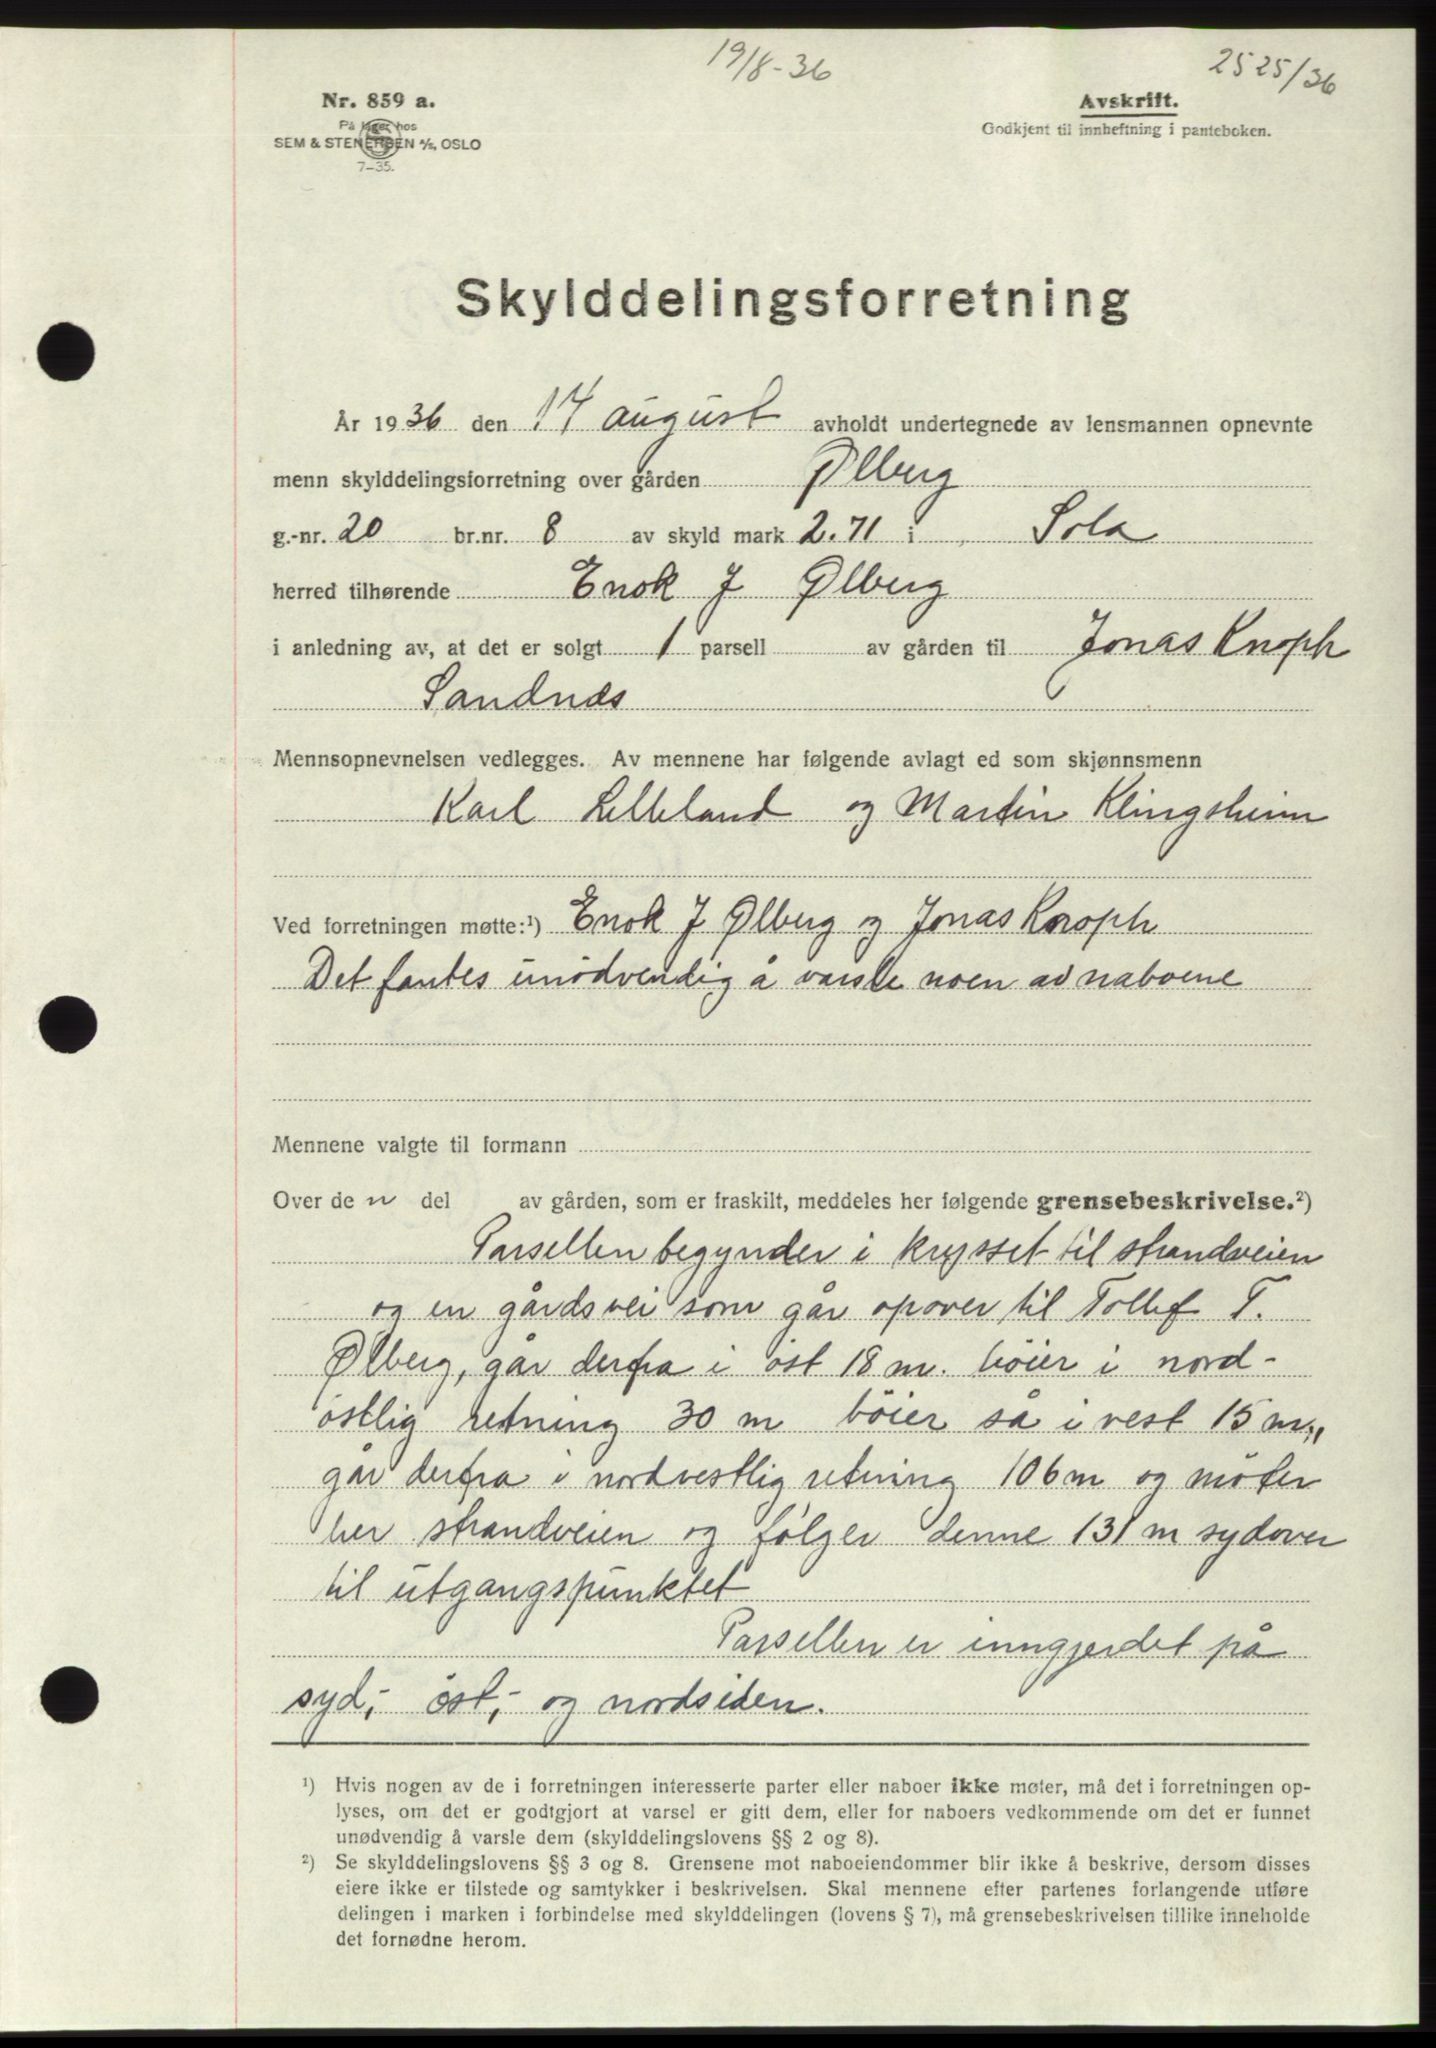 19/8-36
2525/36
Nr. 859 a.
På lager hos
SEM & STENERSEN A/S, OSLO
7-35.
Avskrift.
Godkjent til innheftning i panteboken.
Skylddelingsforretning
År 1936 den 17 august avholdt undertegnede av lensmannen opnevnte
menn skylddelingsforretning over gården Ølberg
g.-nr. 20 br.nr. 8 av skyld mark 2.71 i Sola
herred tilhørende Enok J Ølberg
i anledning av, at det er solgt 1 parsell av gården til Jonas Knoph
Sandnes
Mennsopnevnelsen vedlegges. Av mennene har følgende avlagt ed som skjønnsmenn
Karl Lelleland og Martin Klingsheim
Ved forretningen møtte:¹) Enok J Ølberg og Jonas Knoph
Det fantes unödvendig å varsle noen av naboene
Mennene valgte til formann
Over de n del av gården, som er fraskilt, meddeles her følgende grensebeskrivelse.²)
Parsellen begynder i krysset til strandveien
og en gårdsvei som går opover til Tollef T.
Ølberg, går derfra i öst 18 m. böier i nord-
östlig retning 30 m böier så i vest 15 m.,
går derfra i nordvestlig retning 106 m og möter
her strandveien og fölger denne 131 m sydover
til utgangspunktet
Parsellen er inngjerdet på
syd,- öst,- og nordsiden.
¹) Hvis nogen av de i forretningen interesserte parter eller naboer ikke møter, må det i forretningen op-
lyses, om det er godtgjort at varsel er gitt dem, eller for naboers vedkommende om det er funnet
unødvendig å varsle dem (skylddelingslovens §§ 2 og 8).
²) Se skylddelingslovens §§ 3 og 8. Grensene mot naboeiendommer blir ikke å beskrive, dersom disses
eiere ikke er tilstede og samtykker i beskrivelsen. Skal mennene efter partenes forlangende utføre
delingen i marken i forbindelse med skylddelingen (lovens § 7), må grensebeskrivelsen tillike inneholde
det fornødne herom.